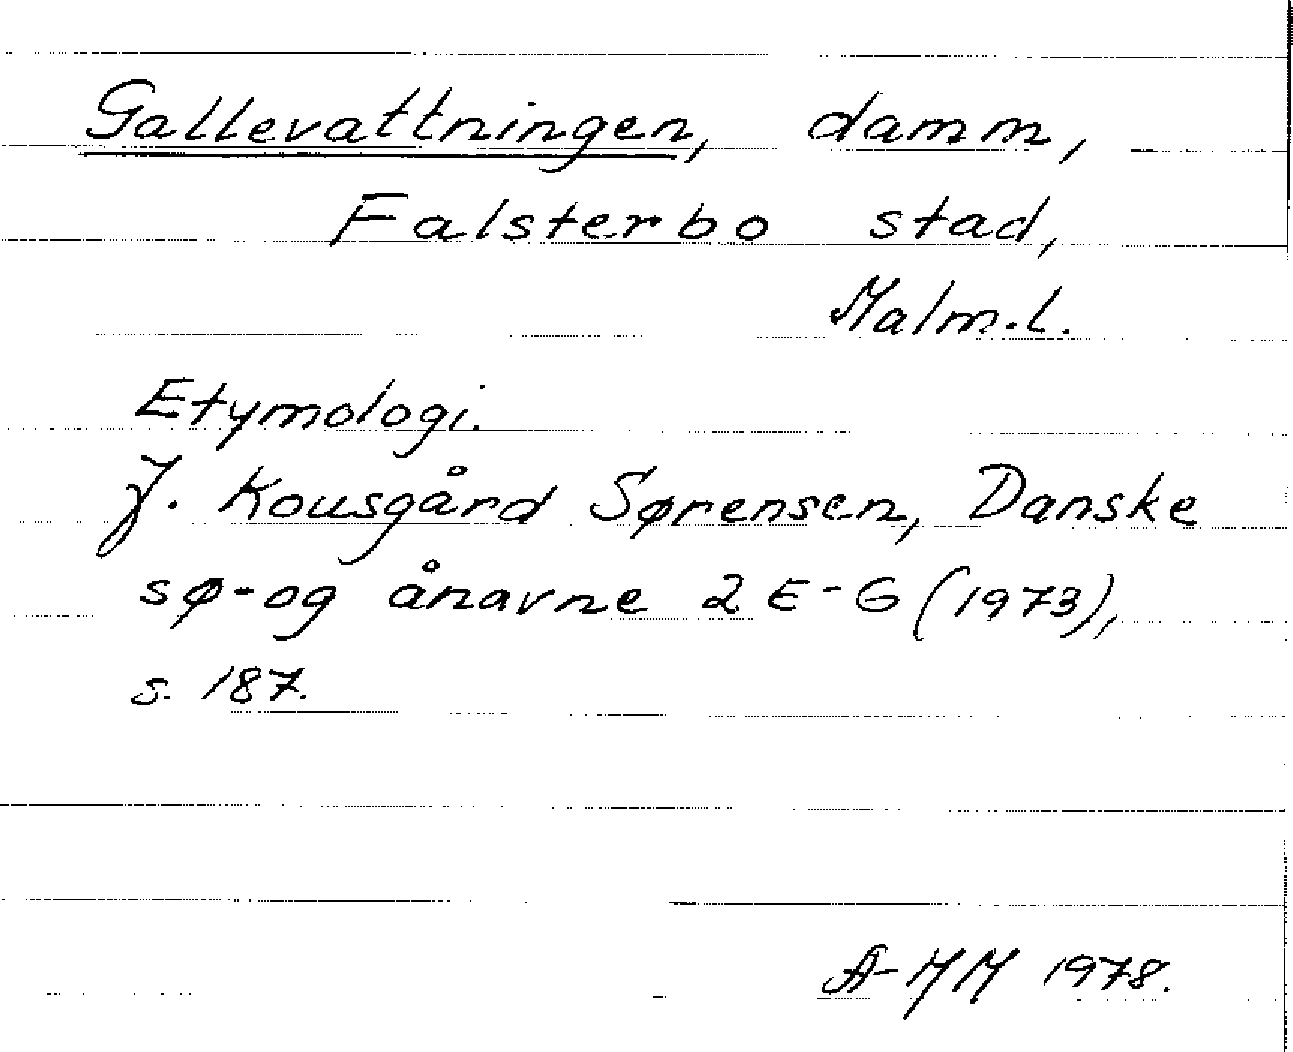 Gallevattningen, damm,
Falsterbo stad,
Malm.l.
Etymologi.
J. Kousgård Sørensen, Danske
sø-og ånavne 2 E-G (1973),
s. 187.
A-MM 1978.